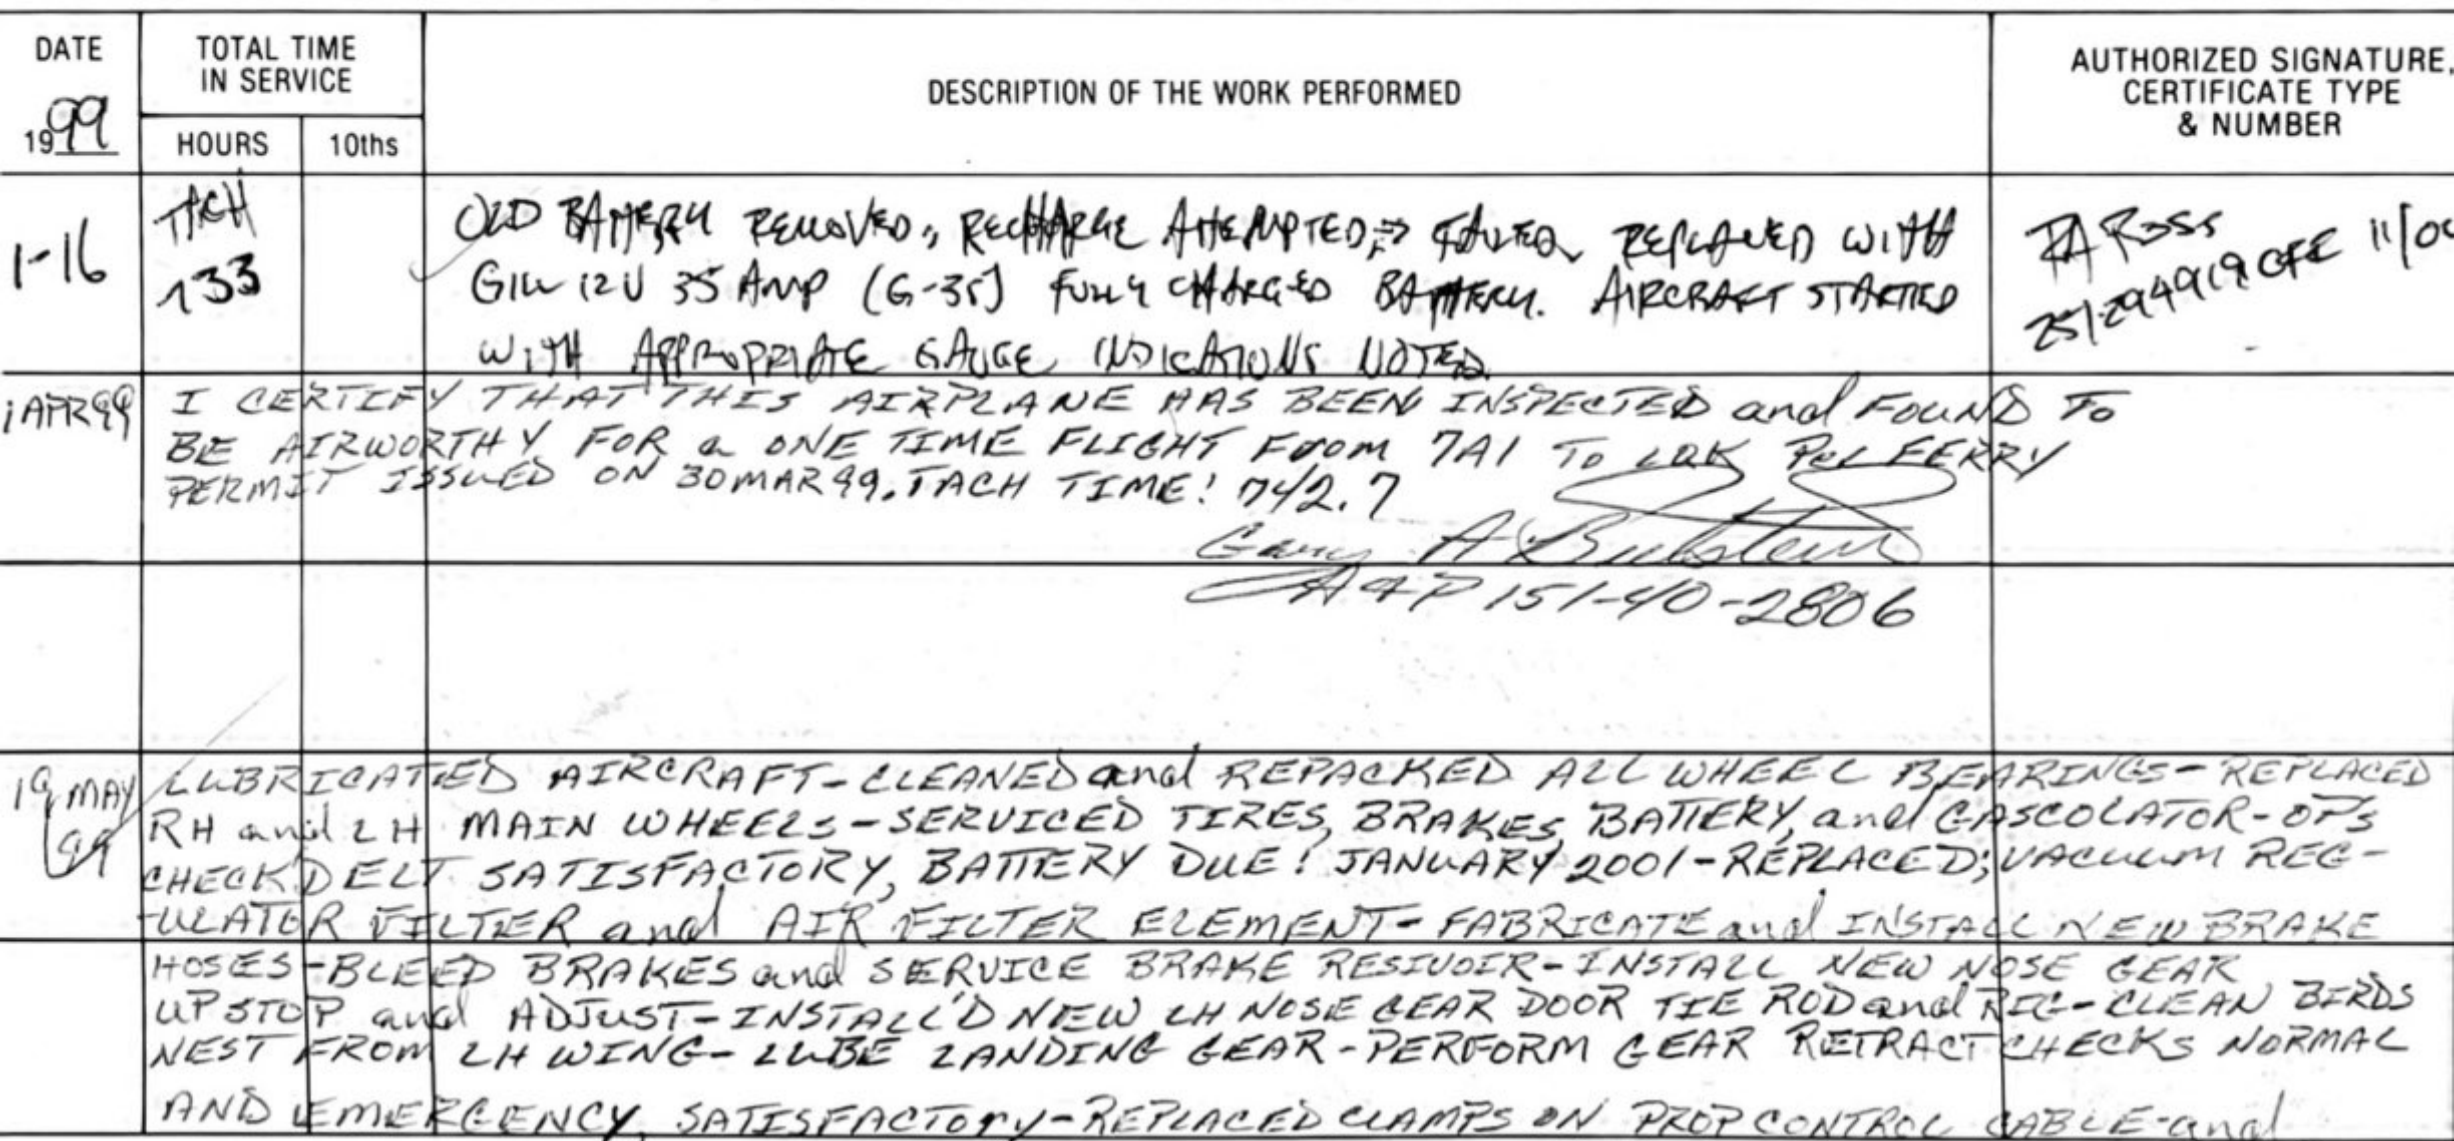 DATE
TOTAL TIME
IN SERVICE
DESCRIPTION OF THE WORK PERFORMED
AUTHORIZED SIGNATURE,
CERTIFICATE TYPE
& NUMBER
1999
HOURS
10ths
1-16
TACH
733
OLD BATTERY REMOVED, RECHARGE ATTEMPTED, FAILED. REPLACED WITH
GILL 12V 35 AMP (G-35) FULLY CHARGED BATTERY. AIRCRAFT STARTED
WITH APPROPRIATE GAUGE INDICATIONS NOTED
RA Ross
251294919 CFE 11/00
1 APR 99
I CERTIFY THAT THIS AIRPLANE HAS BEEN INSPECTED and FOUND TO
BE AIRWORTHY FOR a ONE TIME FLIGHT FROM 7A1 TO LQK PER FERRY
PERMIT ISSUED ON 30MAR99. TACH TIME: 742.7
Gary A
A&P 151-40-2806
19 MAY
99
LUBRICATED AIRCRAFT-CLEANED and REPACKED ALL WHEEL BEARINGS-REPLACED
RH and LH MAIN WHEELS-SERVICED TIRES, BRAKES, BATTERY, and GASCOLATOR-OPS
CHECK'D ELT SATISFACTORY, BATTERY DUE: JANUARY 2001-REPLACED; VACUUM REG-
-ULATOR FILTER and AIR FILTER ELEMENT-FABRICATE and INSTALL NEW BRAKE
HOSES-BLEED BRAKES and SERVICE BRAKE RESIVOIR-INSTALL NEW NOSE GEAR
UP STOP and ADJUST-INSTALL'D NEW LH NOSE GEAR DOOR TIE ROD and RIG-CLEAN BIRDS
NEST FROM LH WING-LUBE LANDING GEAR-PERFORM GEAR RETRACT CHECKS NORMAL
AND EMERGENCY, SATISFACTORY-REPLACED CLAMPS ON PROP CONTROL CABLE-and